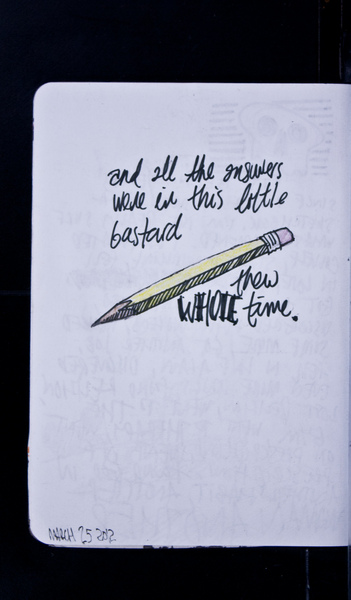 and all the answers
were in this little
bastard
thew
WHOLE time.
MARCH 25 2012